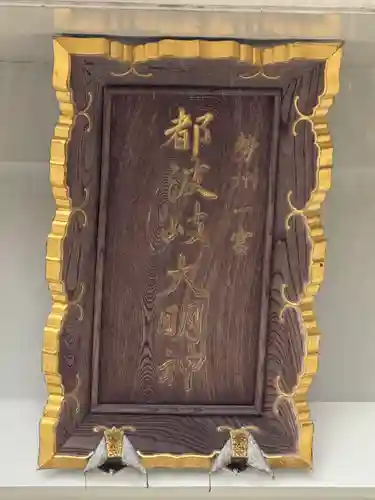 勢州一宮
都波岐大明神